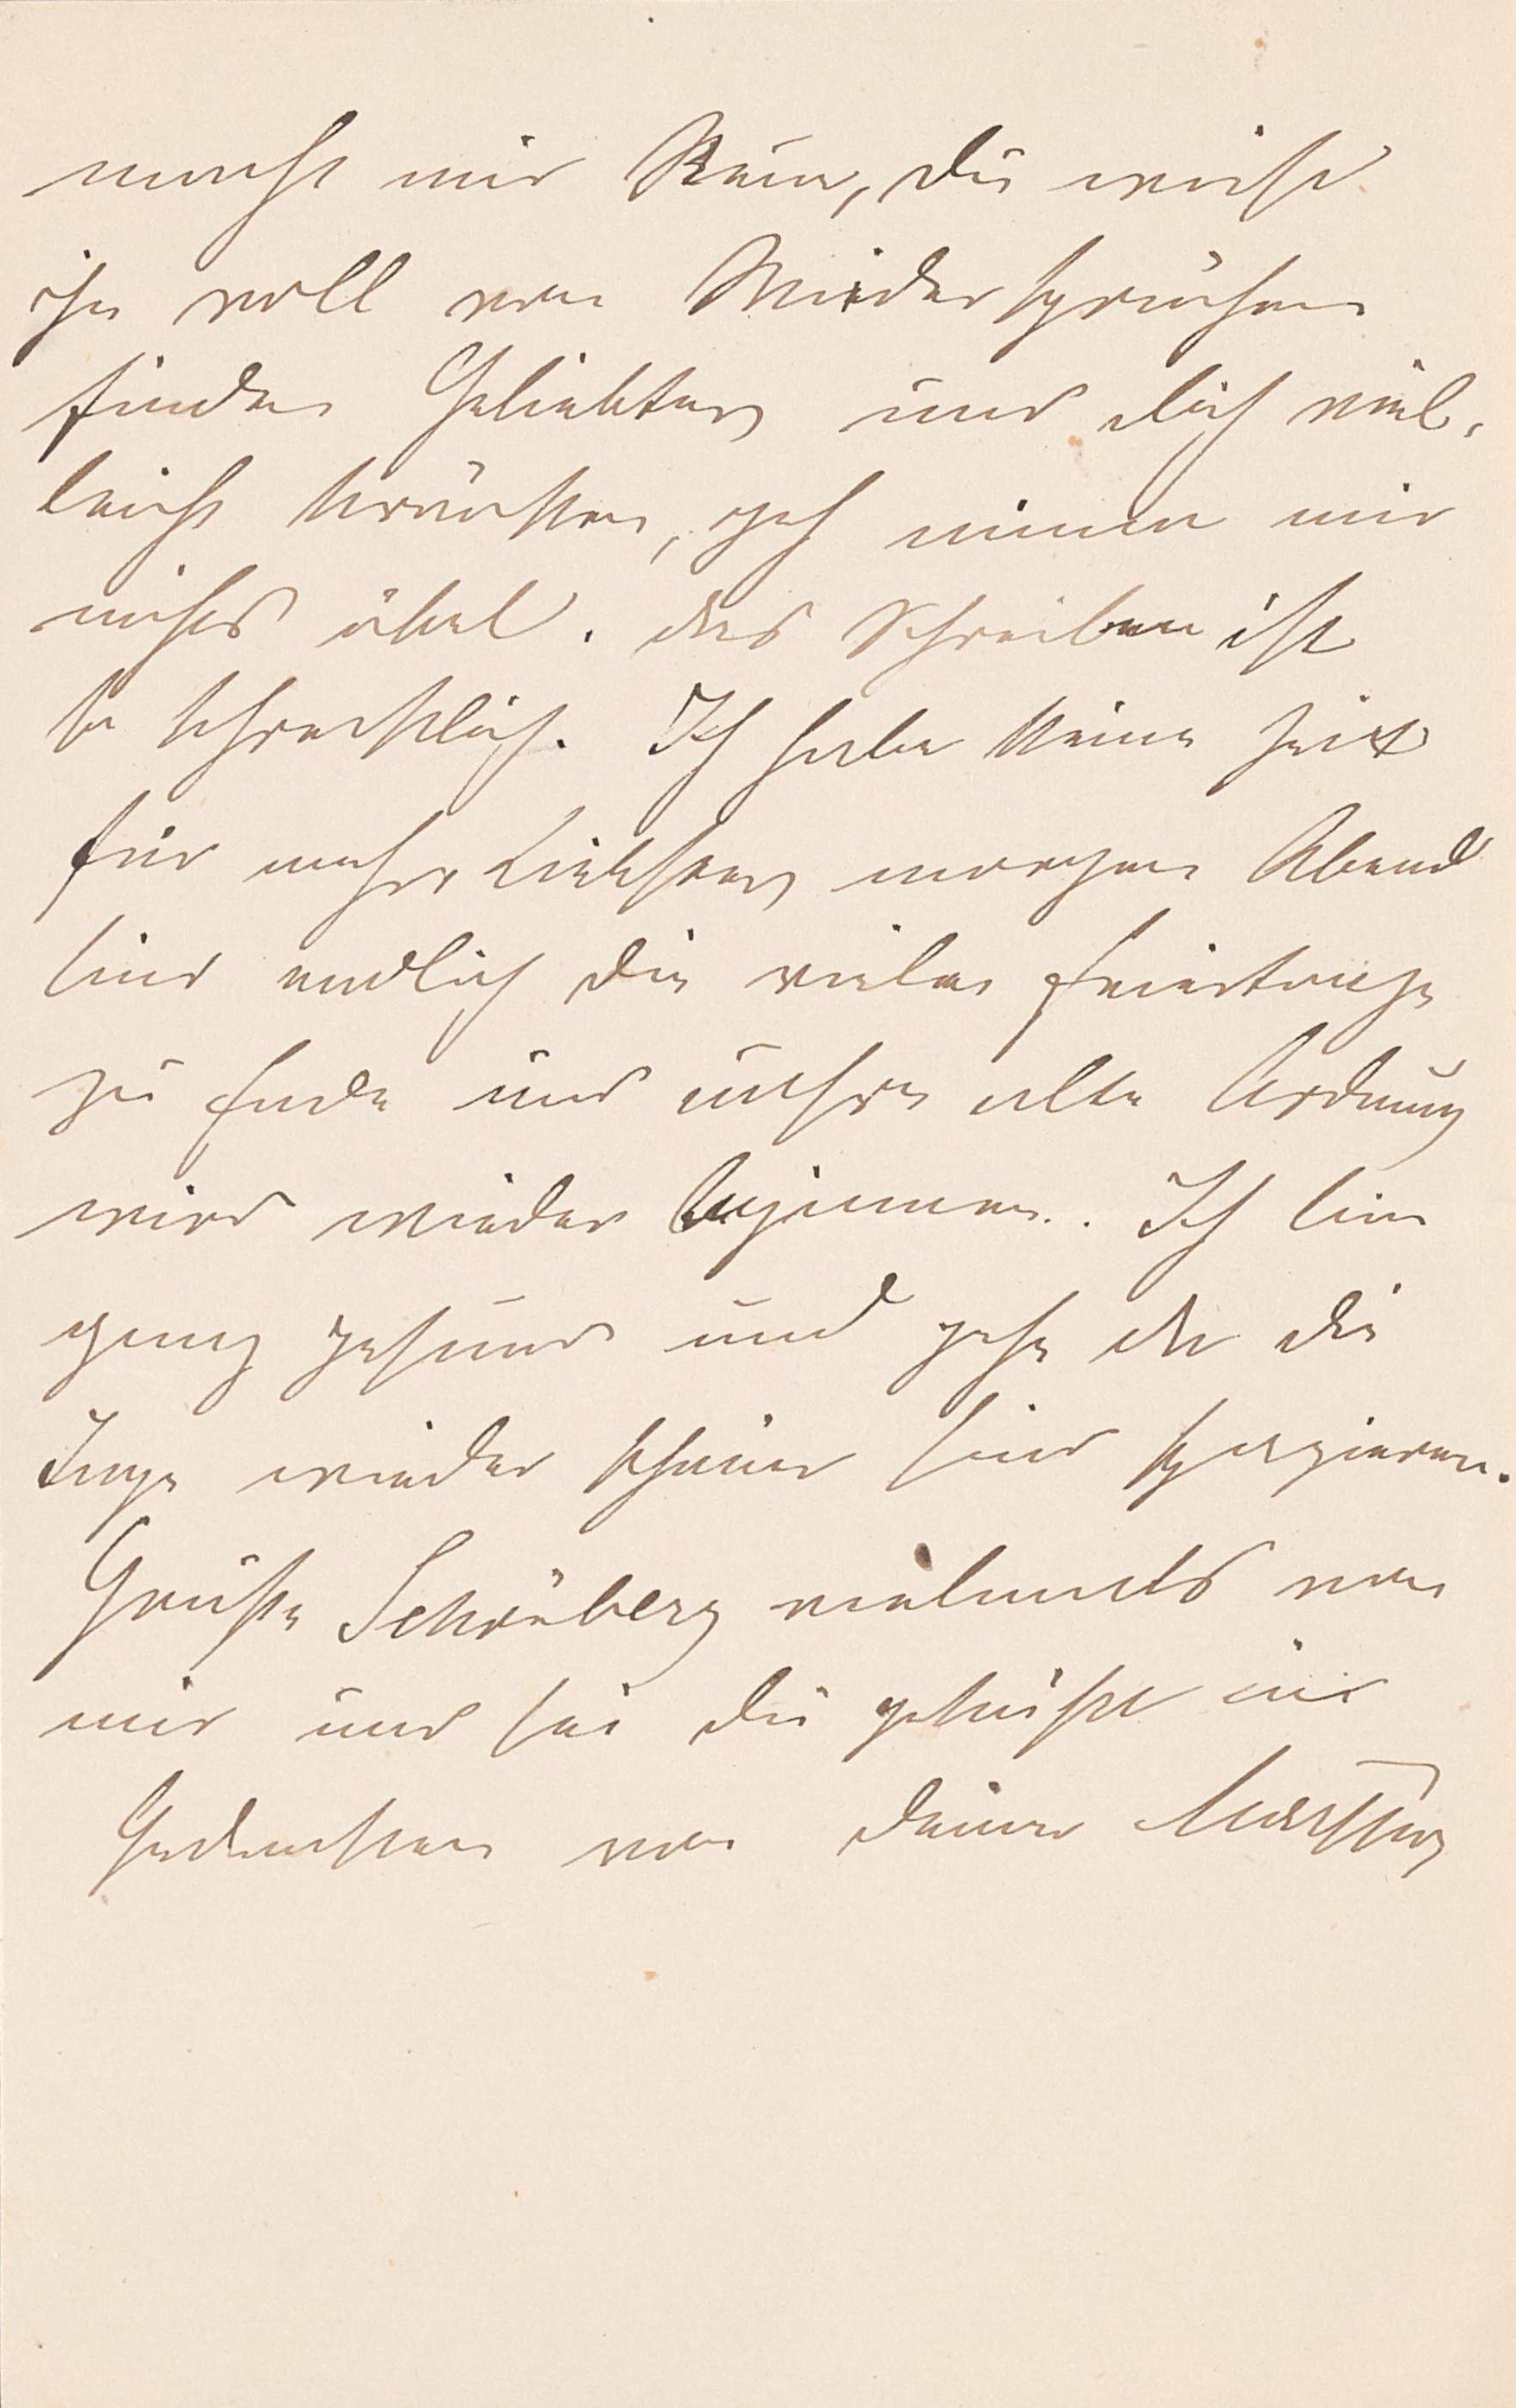 macht mir Pein, du wirst
ihn voll von Wiedersprüchen
finden Geliebter und dich viel-
leicht kränken, geh nimm mir
nichts übel. das Schreiben ist
so schrecklich. Ich habe keine Zeit
für mehr Liebster morgen Abend
sind endlich die vielen Feiertage
zu Ende und unsre alte Ordnung
wird wieder beginnen. Ich bin
ganz gesund und gehe da die
Tage wieder schöner sind spazieren.
Grüße Schönberg vielmals von
mir und sei du geküßt in
Gedanken von deiner